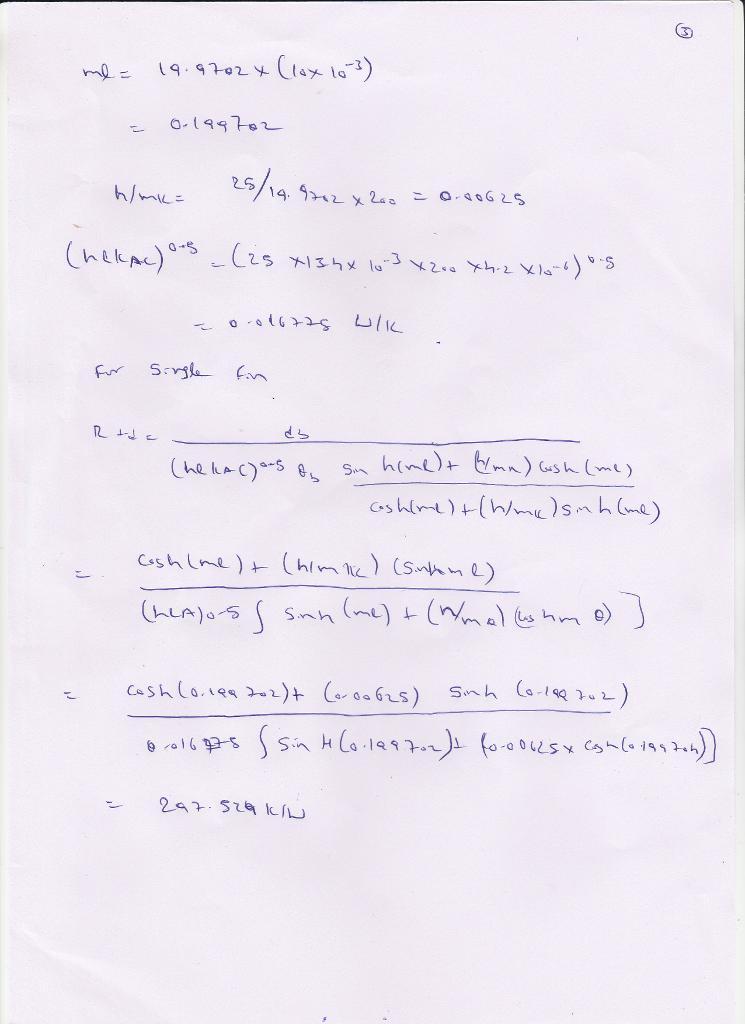 3
ml = 19.9702 x (10x 10^-3)
= 0.199702
h/mk = 25/19.9702 x 200 = 0.00625
(hlkAc)^0.5 = (25 x 134 x 10^-3 x 200 x 4.2 x 10^-6)^0.5
= 0.016775 W/K
For Single fin
R td = db
(hlkAC)^0.5 θb sin h(ml) + (h/mk) cosh (ml)
cosh(ml) + (h/mk) sinh (ml)
= cosh (ml) + (h/mk) (sinhml)
(hlA)0.5 [ sinh (ml) + (h/ma) (coshm θ) ]
= cosh (0.199702) + (0.00625) sinh (0.199702)
0.016775 [ Sin H (0.199702) + (0.00625 x cosh (0.199702)]
= 297.529 K/W